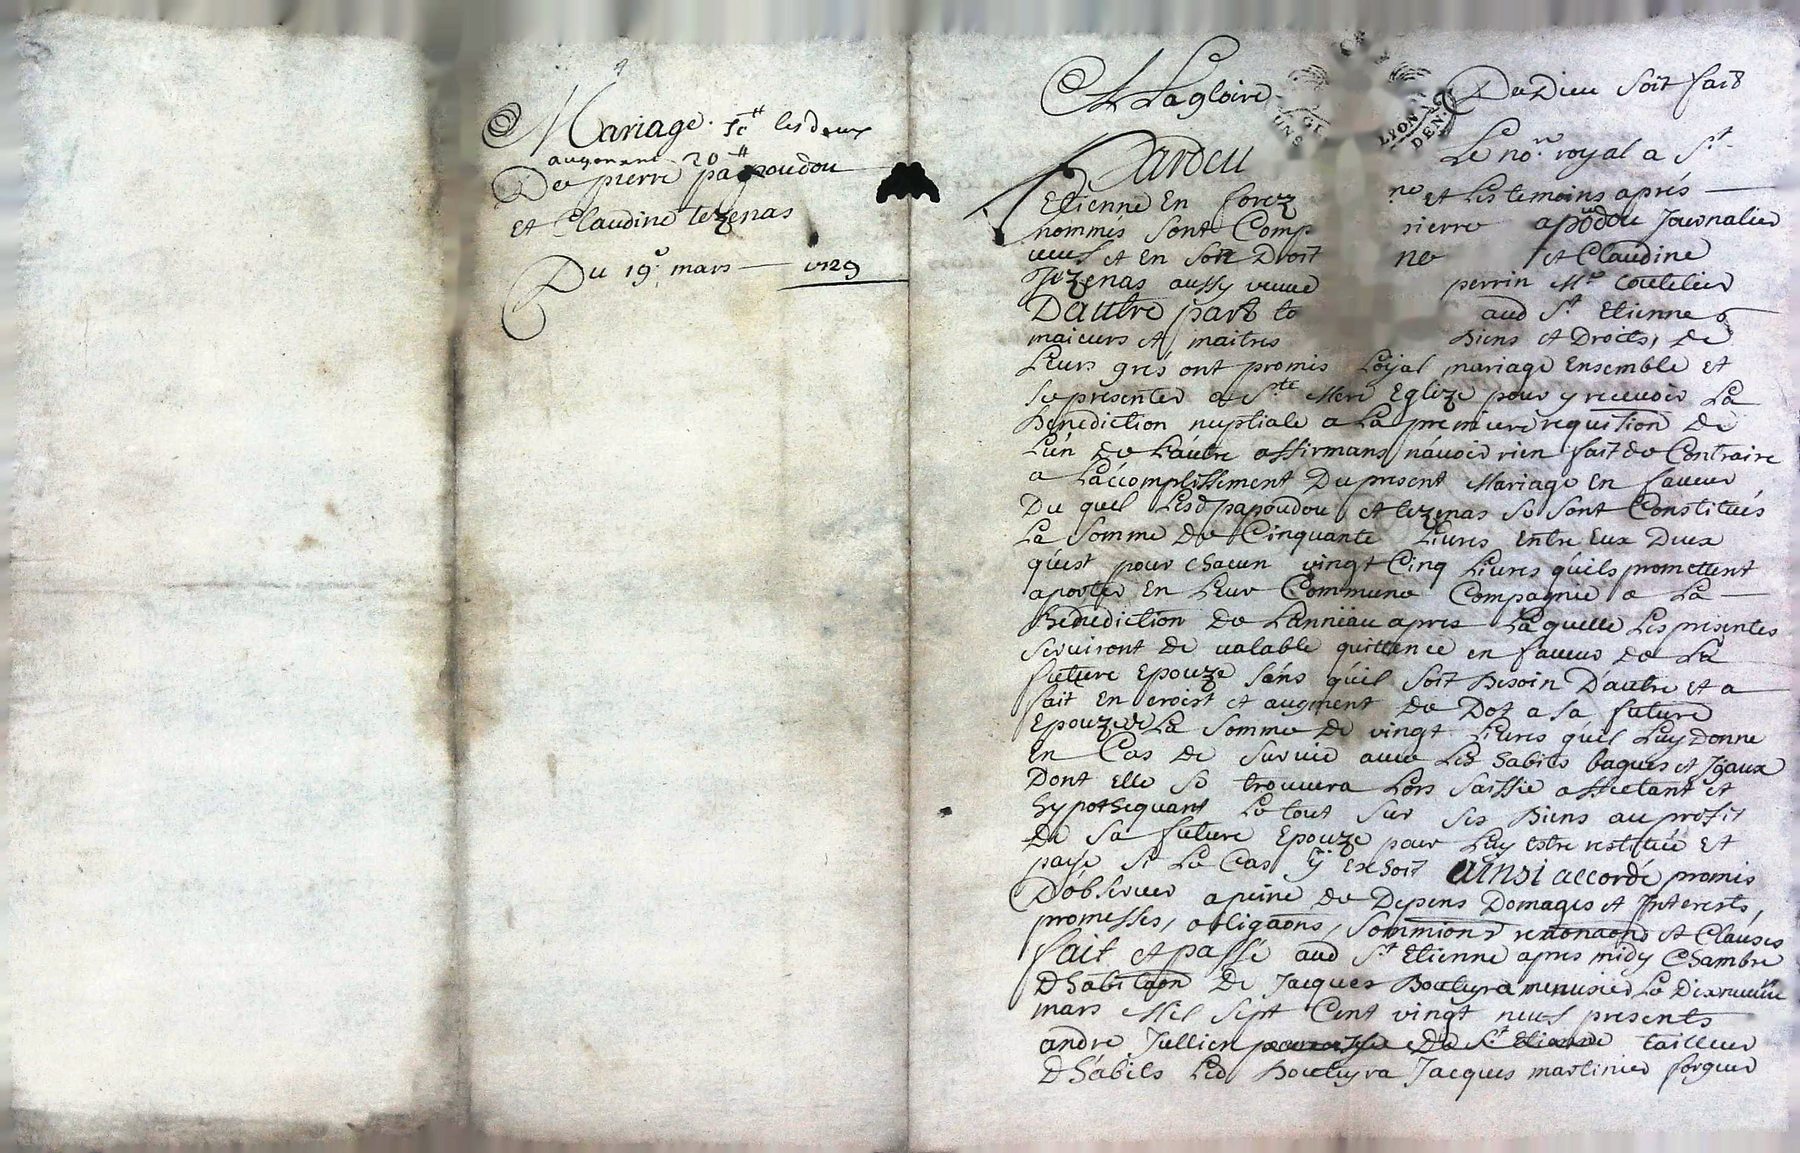 Mariage. 5c ₶ les deux
augment 20 ₶
De pierre papoudou
et Claudine tezenas
Du 19e mars — 1729
A La gloire De Dieu Soit fait
LYON DEN.
Pardeu Le no.re royal a St
Etienne En forez et Les temoins aprés
nommes Sont Comp pierre apoudou Journalier
veuf et En Son Droit et Claudine
Tezenas aussy veuve perrin Me Coutelier
D'autre part to aud St Etienne
maieurs et maitres Biens et Droits, de
Leurs grés ont promis Loyal mariage Ensemble et
Se presenter a Ste Mere Eglize pour y recevoir La
Benediction nuptiale a La premiere requition de
L'un de L'autre affirmans n'avoir rien fait de Contraire
a L'accomplissement Du present Mariage En faveur
Du quel Lesd papoudou et tezenas Se Sont Constitués
La Somme de Cinquante Livres Entre Eux Deux
qu'est pour chacun vingt Cinq Livres qu'ils promettent
aporter En Leur Commune Compagnie a La
Benediction de L'anneau apres Laquelle Les presentes
Serviront de valable quittence en faveur de La
future Epouze sans qu'il Soit Besoin D'autre et a
fait En croist et augment de Dot a Sa future
Epouze de La Somme de vingt Livres qu'il Luy donne
En Cas de Survie avec Les habits bagues et Joyaux
Dont Elle Se trouvera Lors Saisie affectant et
hypothequant Le tout Sur Ses Biens au profit
De Sa future Epouze pour Luy estre restitué et
payé Si Le Cas y Eschoit ainsi accordé promis
D'observer a peine de Depens Domages et Interests,
promesses, obligaons, Sommions renonaons et Clauses
fait et passé aud St Etienne apres midy Chambre
D'habitaon de Jacques Bouteyra menusier Le Dixneuvie
mars Mil Sept Cent vingt neuf presents
andre Jullien De St Etienne tailleur
D'habits Led Bouteyra Jacques martinier forgeur